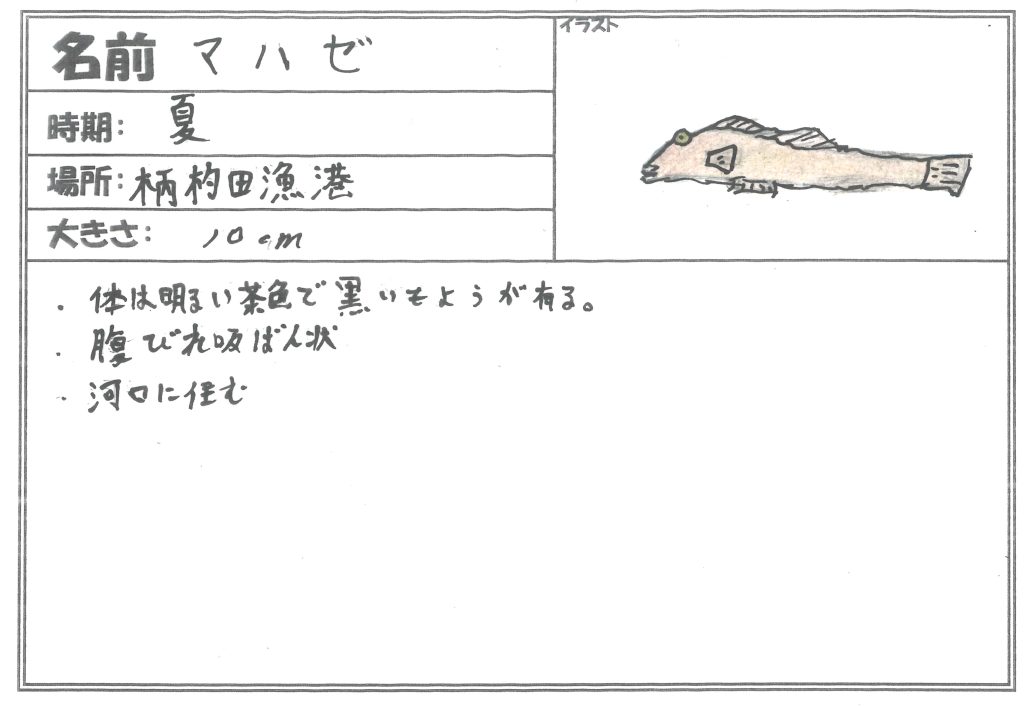 名前 マハゼ
イラスト
時期: 夏
場所: 柄杓田漁港
大きさ: 10cm
・体は明るい茶色で黒いもようが有る。
・腹びれ吸ばん状
・河口に住む